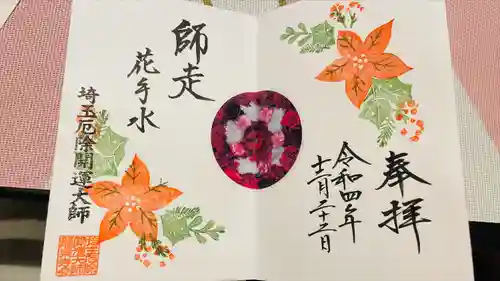 奉拝
令和四年
十二月二十三日
師走
花手水
埼玉厄除開運大師